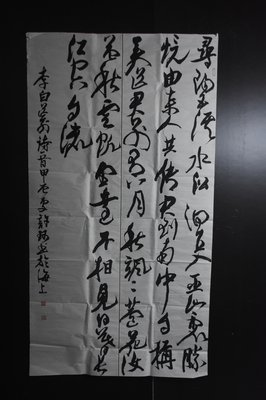 尋陽五溪水沿洄直入巫山裏勝
境由來人共傳君到南中自稱
美送君別有八月秋颯々蘆花復
益愁雲帆望遠不相見日暮長
江空自流
李白送別詩首甲午許書於海上